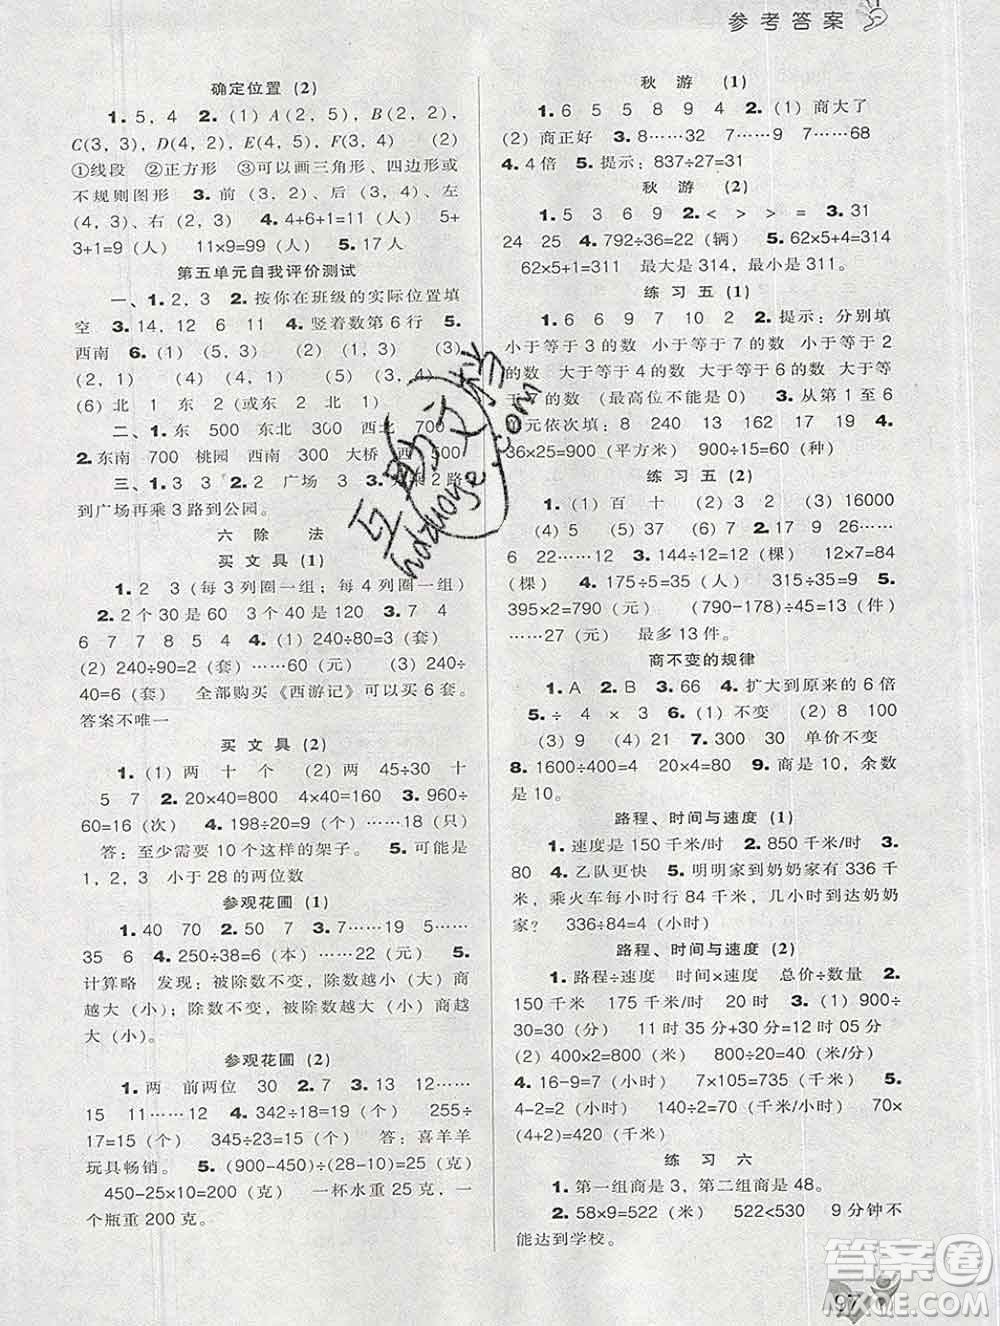 参考答案
确定位置 (2)
1. 5，4　2. (1) A(2，5)　B(2，2)，
C(3，3)，D(4，2)，E(4，5)，F(3，4)　(2)
①线段　②正方形　③可以画三角形、四边形或
不规则图形　3. 前 (3，2)、后 (3，4)、左
(4，3)、右 (2，3)　4. 4+6+1=11 (人)　5+
3+1=9 (人)　11×9=99 (人)　5. 17人
第五单元自我评价测试
一、1. 2，3　2. 按你在班级的实际位置填
空　3. 14，12　6　11　4. 竖着数第 6 行　5.
西南　6. (1) (5，3)　(2) (1，3)　(3)
(2，1)　(4) (5，1)　(5) (4，2)
(6) 北　1　东　2 (或东　2　北　1)
二、1. 东　500　东北　300　西北　700
2. 东南　700　桃园　西南　300　大桥　西　700
三、1. 3　2. 2　广场　3　3. 乘 2 路
到广场再乘 3 路到公园。
六　除　法
买 文 具 (1)
1. 2　3 (每 3 列圈一组；每 4 列圈一
组)　2. 2 个 30 是 60　3 个 40 是 120　3. 7　4
6　7　7　8　5　4　4. (1) 240÷80=3 (套)
(2) 240÷90=2 (套) ……60 (元)　(3) 240÷
40=6 (套)　全部购买《西游记》可以买 6 套。
答案不唯一
买 文 具 (2)
1. (1) 两　十　个　(2) 两　45÷30　十
5　7　2. 20×40=800　4×40=160　3. 960÷
60=16 (次)　4. 198÷20=9 (个) ……18 (只)
答：至少需要 10 个这样的架子。　5. 可能是
1，2，3　小于 28 的两位数
参观花圃 (1)
1. 40　70　2. 50　3. 7……35　7……
35　6　4. 250÷38=6 (本) ……22 (元)　5.
计算略　发现：被除数不变，除数越小 (大) 商
越大 (小)；除数不变，被除数越大 (小) 商越
大 (小)。
参观花圃 (2)
1. 两　前两位　30　2. 7　3. 12　12……
15　11　12……12　4. 342÷18=19 (个)　255÷
17=15 (个)　345÷23=15 (个)　答：喜羊羊
玩具畅销。　5. (900-450)÷(28-10)=25 (克)
450-25×10=200 (克)　一杯水重 25 克，一
个瓶重 200 克。
秋　游 (1)
1. 6　5　5　8　9　4　2. (1) 商大了
(2) 商正好　3. 8……32　7……9　7……68
4. 4 倍　5. 提示：837÷27=31
秋　游 (2)
1. 5　3　6　9　2. <　>　>　=　3. 31
24　25　4. 792÷36=22 (辆)　5. 62×5+4=314
62×5+1=311　最大是 314，最小是 311。
练 习 五 (1)
1. 6　6　9　7　10　2　2. 提示：分别填
小于等于 3 的数　小于等于 7 的数　小于等于 2
的数　大于等于 4 的数　大于等于 6 的数　大于
等于 7 的数 (最高位不能是 0)　3. 从第 1 至 6
单元依次填：8　2　241　162　19　17　4.
36×25=900 (平方米)　900÷15=60 (种)
练 习 五 (2)
1. (1) 百　十　(2) 5　(3) 16000
(4) 5　(5) 70　27　2. 8　5……26
6　22……6　3. 48÷4=12 (棵)　12×7=84
(棵)　4. 175÷5=35 (人)　5. 3
395×2=790 (元)　(790-178)÷45=13 (件)
……27 (元)　最多 13 件。
商不变的规律
1. A　2. B　3. 66　4. 扩大到原来的 6 倍
5. ÷　4　×　3　6. (1) 不变　(2) 8　100
(3) 9　(4) 21　7. 300　30　单价不变
8. 1600÷400=4　20×4=80　9. 商是 10，余数
是 10。
路程、时间与速度 (1)
1. 速度是 150 千米/时　2. 850 千米/时　3.
80　4. 乙队更快　5. 明明家到奶奶家有 336 千
米，乘火车每小时行 84 千米，几小时到达奶奶
家？　336÷84=4 (小时)
路程、时间与速度 (2)
1. 路程÷速度　时间×速度　总价÷数量　2.
150 千米　175 千米/时　20 时　3. (1) 900÷
30=30 (分)　11 时 35分+30 分=12 时 05分
(2) 400×2=800 (米)　800÷10=80 (米/分)
4. 16-9=7 (小时)　7×105=735 (千米)　5.
4-2=2 (小时)　140÷2=70 (千米/小时)　70×
(4+2)=420 (千米)
练 习 六
1. 第一组商是 3，第二组商是 48。
2. 58×9=522 (米)　522<530　9 分钟不
能达到学校。
97
互助文档
hdzuoye.com
答案圈